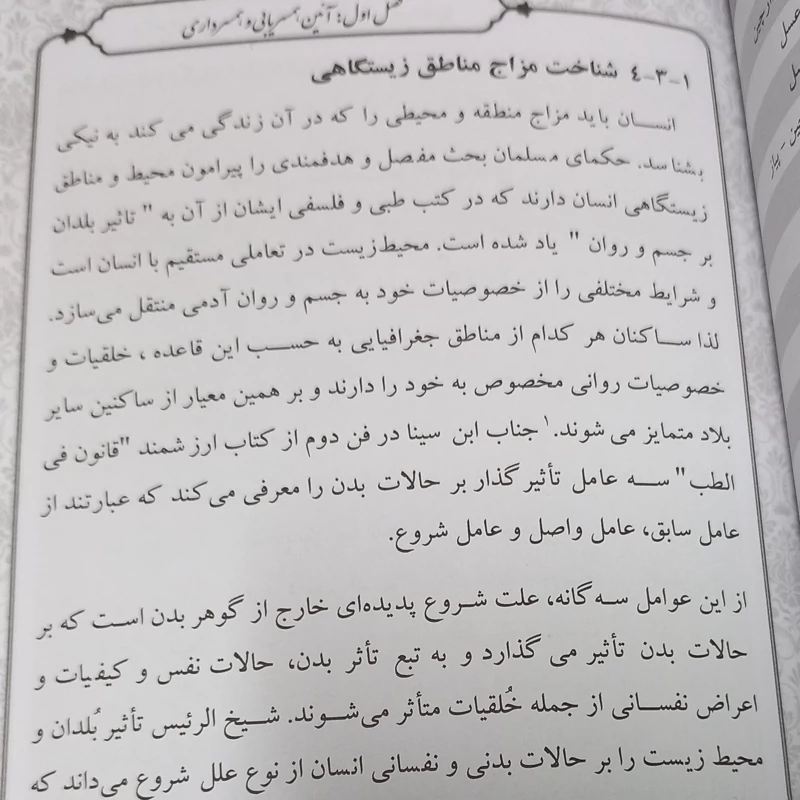 فصل اول: آئین همسریابی و همسرداری
۱-۳-٤ شناخت مزاج مناطق زیستگاهی
انسان باید مزاج منطقه و محیطی را که در آن زندگی می کند به نیکی
بشناسد. حکمای مسلمان بحث مفصل و هدفمندی را پیرامون محیط و مناطق
زیستگاهی انسان دارند که در کتب طبی و فلسفی ایشان از آن به " تاثیر بلدان
بر جسم و روان " یاد شده است. محیط‌زیست در تعاملی مستقیم با انسان است
و شرایط مختلفی را از خصوصیات خود به جسم و روان آدمی منتقل می‌سازد.
لذا ساکنان هر کدام از مناطق جغرافیایی به حسب این قاعده ، خلقیات و
خصوصیات روانی مخصوص به خود را دارند و بر همین معیار از ساکنین سایر
بلاد متمایز می شوند.۱ جناب ابن سینا در فن دوم از کتاب ارزشمند "قانون فی
الطب" سه عامل تأثیر گذار بر حالات بدن را معرفی می‌کند که عبارتند از
عامل سابق، عامل واصل و عامل شروع.
از این عوامل سه‌گانه، علت شروع پدیده‌ای خارج از گوهر بدن است که بر
حالات بدن تأثیر می گذارد و به تبع تأثر بدن، حالات نفس و کیفیات و
اعراض نفسانی از جمله خُلقیات متأثر می‌شوند. شیخ الرئیس تأثیر بُلدان و
محیط زیست را بر حالات بدنی و نفسانی انسان از نوع علل شروع می‌داند که
عسل